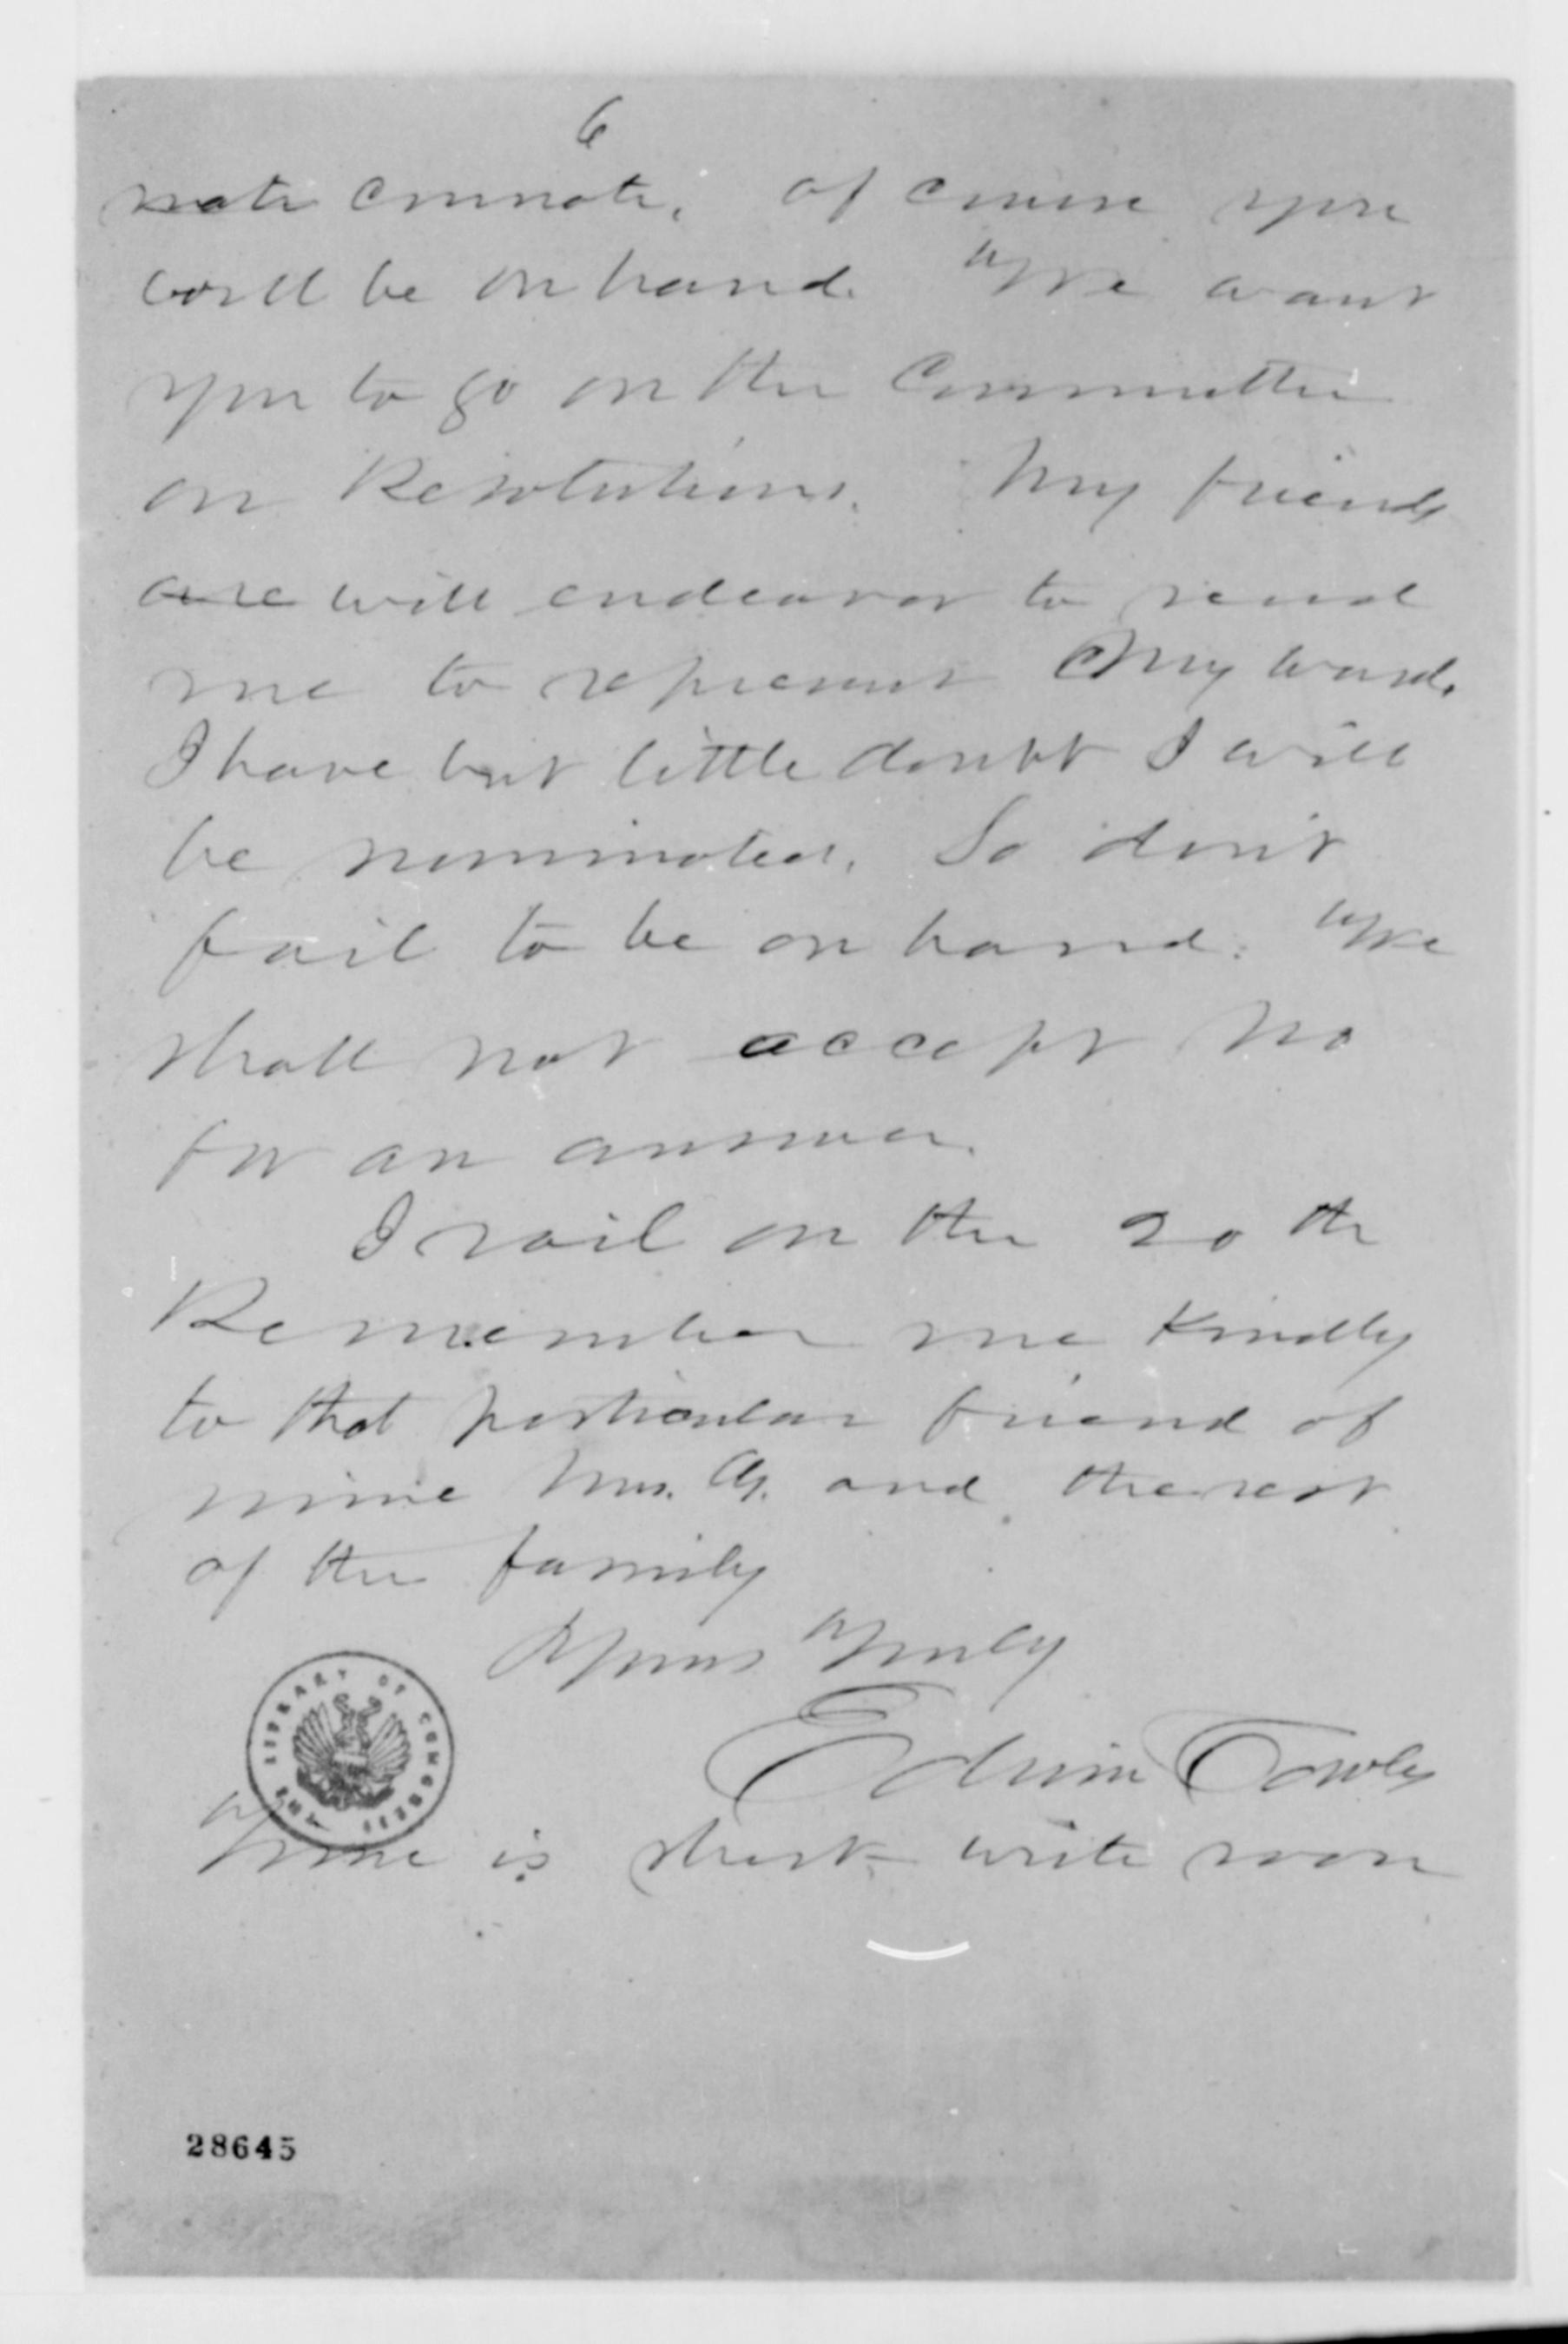 6
nate connate. Of course you
will be on hand. We want
you to go on the Committee
on Resolutions. My friends
are will endeavor to send
me to represent my ward.
I have but little doubt I will
be nominated. So don't
fail to be on hand. We
shall not accept no
for an answer.
I sail on the 20th
Remember me kindly
to that particular friend of
mine Mrs. G. and the rest
of the family
Yours Truly
Edwin Cowles
THE LIBRARY OF CONGRESS
Time is short write soon
28645